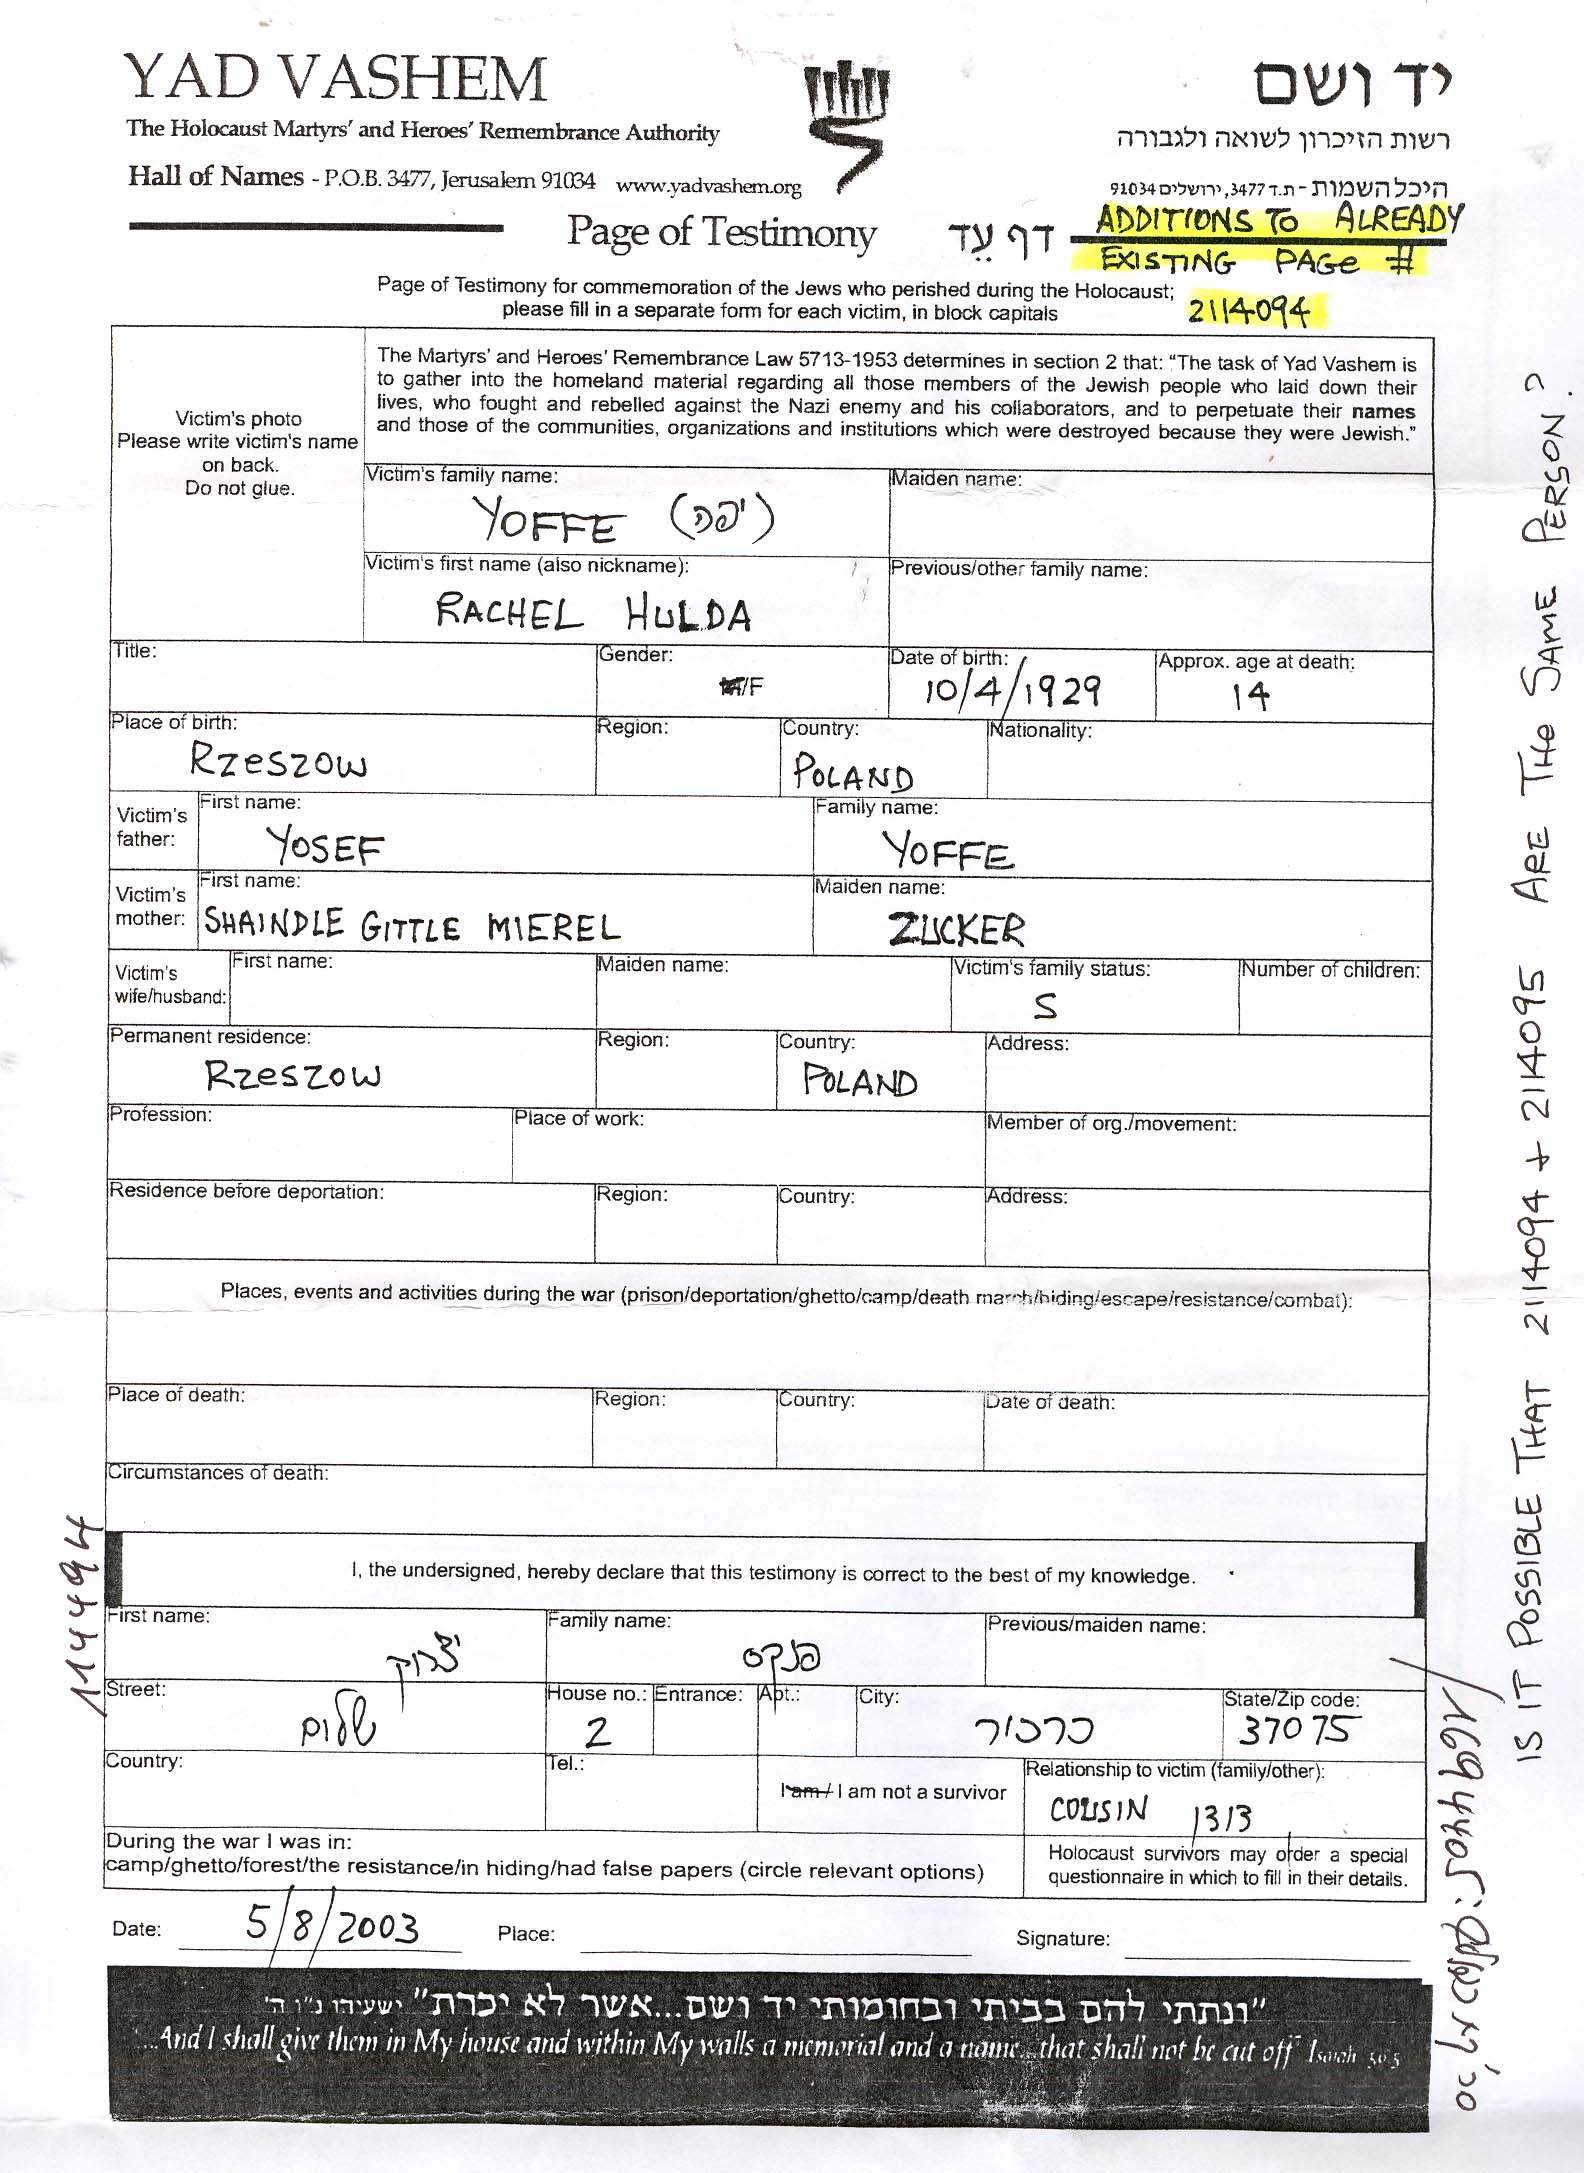 YAD VASHEM
The Holocaust Martyrs' and Heroes' Remembrance Authority
Hall of Names - P.O.B. 3477, Jerusalem 91034 www.yadvashem.org
יד ושם
רשות הזיכרון לשואה ולגבורה
היכל השמות - ת.ד 3477, ירושלים 91034
Page of Testimony דף עֵד
ADDITIONS TO ALREADY
EXISTING PAGE #
2114094
Page of Testimony for commemoration of the Jews who perished during the Holocaust;
please fill in a separate form for each victim, in block capitals
Victim's photo
Please write victim's name
on back.
Do not glue.
The Martyrs' and Heroes' Remembrance Law 5713-1953 determines in section 2 that: "The task of Yad Vashem is
to gather into the homeland material regarding all those members of the Jewish people who laid down their
lives, who fought and rebelled against the Nazi enemy and his collaborators, and to perpetuate their names
and those of the communities, organizations and institutions which were destroyed because they were Jewish."
Victim's family name: Maiden name:
YOFFE (יפה)
Victim's first name (also nickname): Previous/other family name:
RACHEL HULDA
Title: Gender: Date of birth: Approx. age at death:
/F 10/4/1929 14
Place of birth: Region: Country: Nationality:
Rzeszow POLAND
Victim's father: First name: Family name:
YOSEF YOFFE
Victim's mother: First name: Maiden name:
SHAINDLE GITTLE MIEREL ZUCKER
Victim's wife/husband: First name: Maiden name: Victim's family status: Number of children:
S
Permanent residence: Region: Country: Address:
Rzeszow POLAND
Profession: Place of work: Member of org./movement:
Residence before deportation: Region: Country: Address:
Places, events and activities during the war (prison/deportation/ghetto/camp/death march/hiding/escape/resistance/combat):
Place of death: Region: Country: Date of death:
Circumstances of death:
I, the undersigned, hereby declare that this testimony is correct to the best of my knowledge.
First name: Family name: Previous/maiden name:
פנקס
Street: House no.: Entrance: Apt.: City: State/Zip code:
שלום 2 כרכור 37075
Country: Tel.: I am / I am not a survivor Relationship to victim (family/other):
COUSIN
During the war I was in:
camp/ghetto/forest/the resistance/in hiding/had false papers (circle relevant options)
Holocaust survivors may order a special
questionnaire in which to fill in their details.
Date: 5/8/2003 Place: Signature:
"ונתתי להם בביתי ובחומותי יד ושם...אשר לא יכרת" ישעיהו נ"ו ה'
"...And I shall give them in My house and within My walls a memorial and a name...that shall not be cut off" Isaiah 56:5
IS IT POSSIBLE THAT 2114094 + 2114095 ARE THE SAME PERSON?
114494